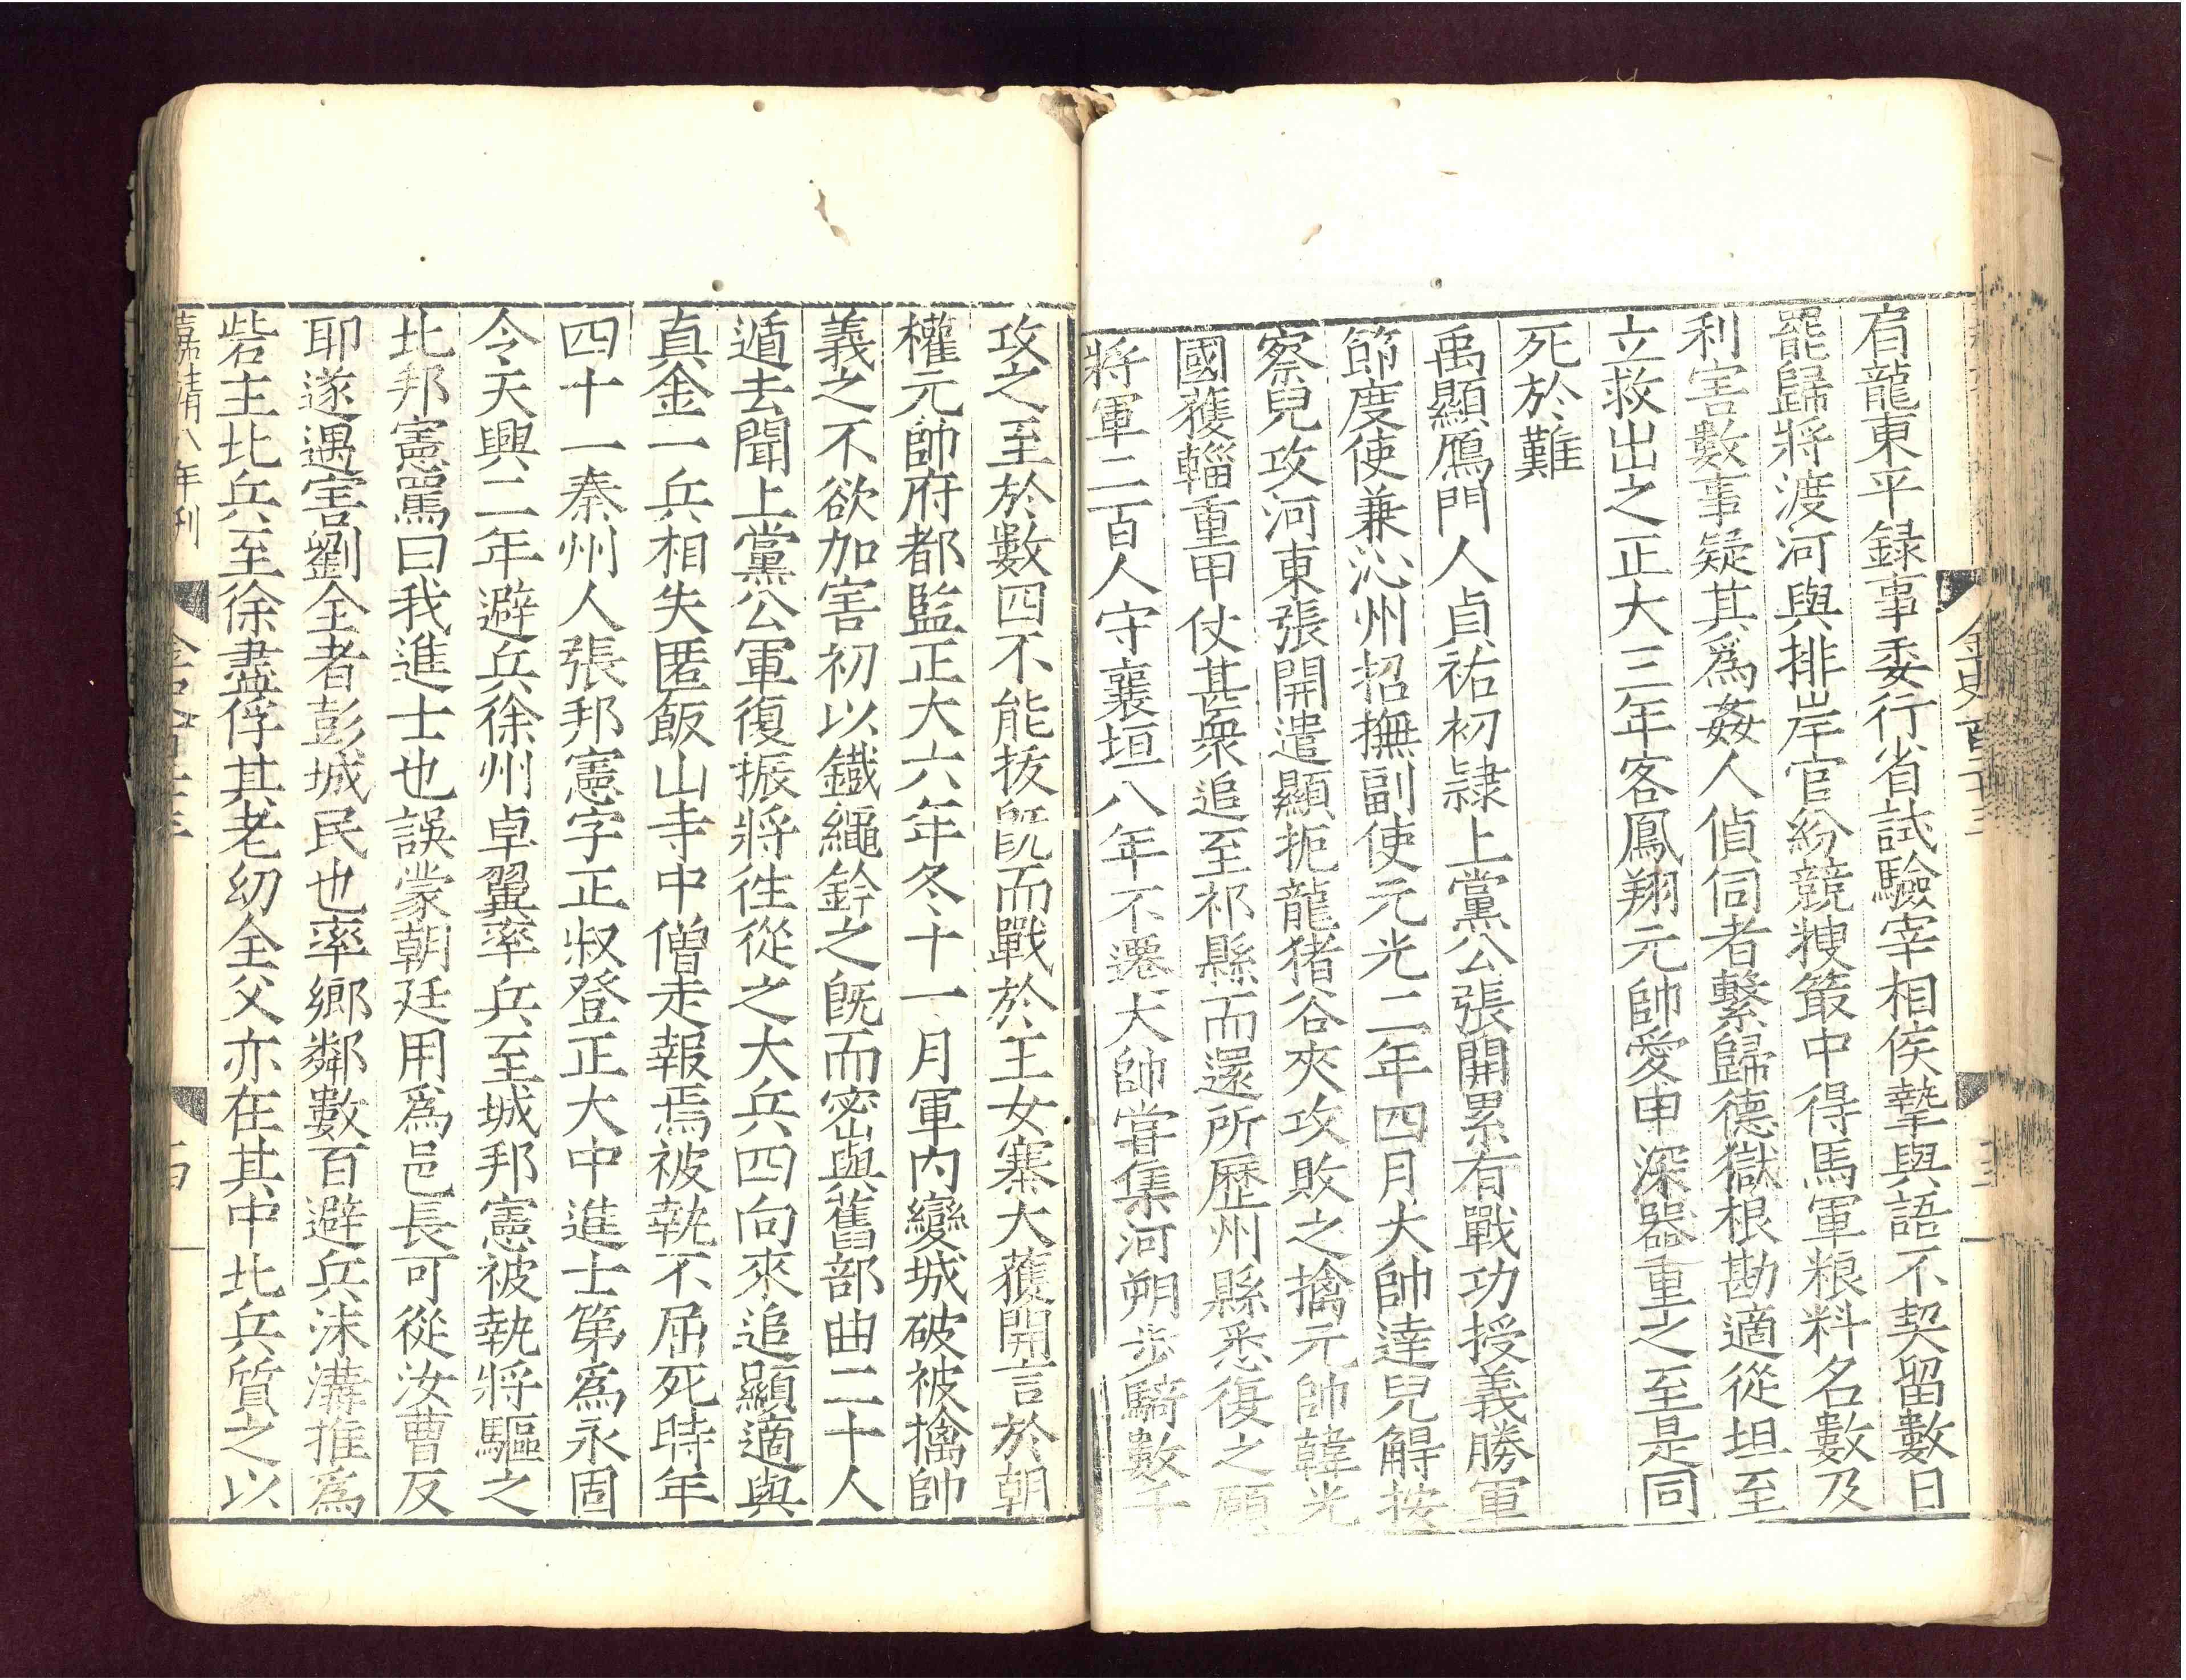 金史百二十三
十三
有龍東平録事委行省試驗宰相侯摯與語不契留數日
罷歸將渡河與排岸官紛競搜篋中得馬軍粮料名數及
利害數事疑其爲姦人偵伺者繫歸德獄根勘適從坦至
立救出之正大三年客鳳翔元帥愛申深器重之至是同
死於難
禹顯鴈門人貞祐初隷上黨公張開累有戰功授義勝軍
節度使兼沁州招撫副使元光二年四月大帥達兒䚟按
察兒攻河東張開遣顯扼龍猪谷夾攻敗之擒元帥韓光
國獲輜重甲仗甚衆追至祁縣而還所歷州縣悉復之顯
將軍二百人守襄垣八年不遷大帥嘗集河朔步騎數千
攻之至於數四不能拔旣而戰於玉女寨大獲開言於朝
權元帥府都監正大六年冬十一月軍内變城破被擒帥
義之不欲加害初以鐵繩鈐之旣而密與舊部曲二十人
遁去聞上黨公軍復振將徃從之大兵四向來追顯適與
真金一兵相失匿飯山寺中僧走報焉被執不屈死時年
四十一秦州人張邦憲字正叔登正大中進士第爲永固
令天興二年避兵徐州卓翼率兵至城邦憲被執將驅之
北邦憲罵曰我進士也誤蒙朝廷用爲邑長可從汝曹反
耶遂遇害劉全者彭城民也率鄉鄰數百避兵沫溝推爲
砦主北兵至徐盡俘其老幼全父亦在其中北兵質之以
嘉靖八年刊